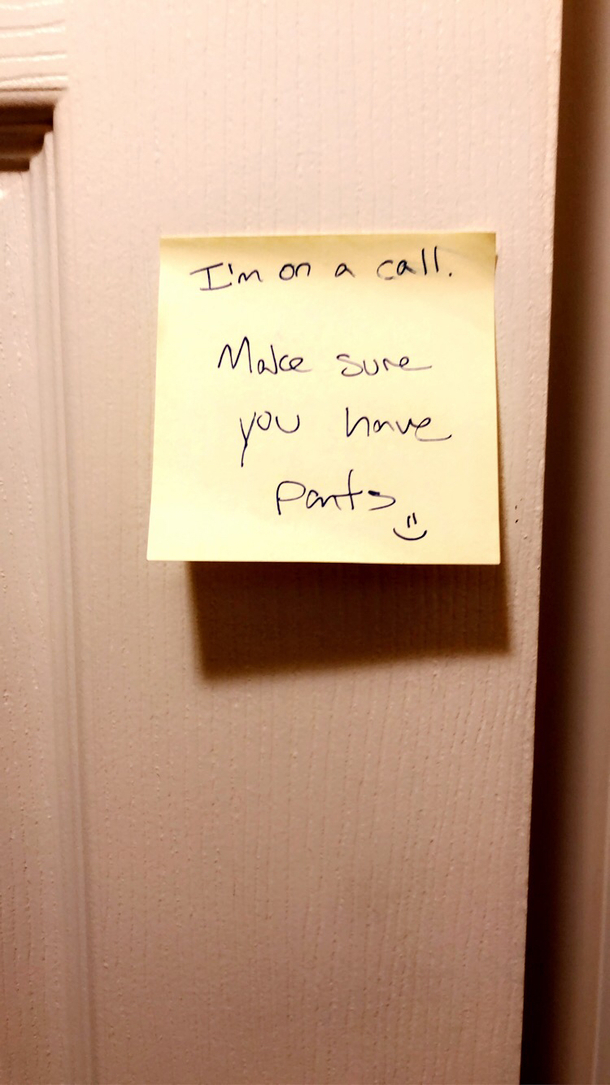 I'm on a call.
Make sure
you have
pants